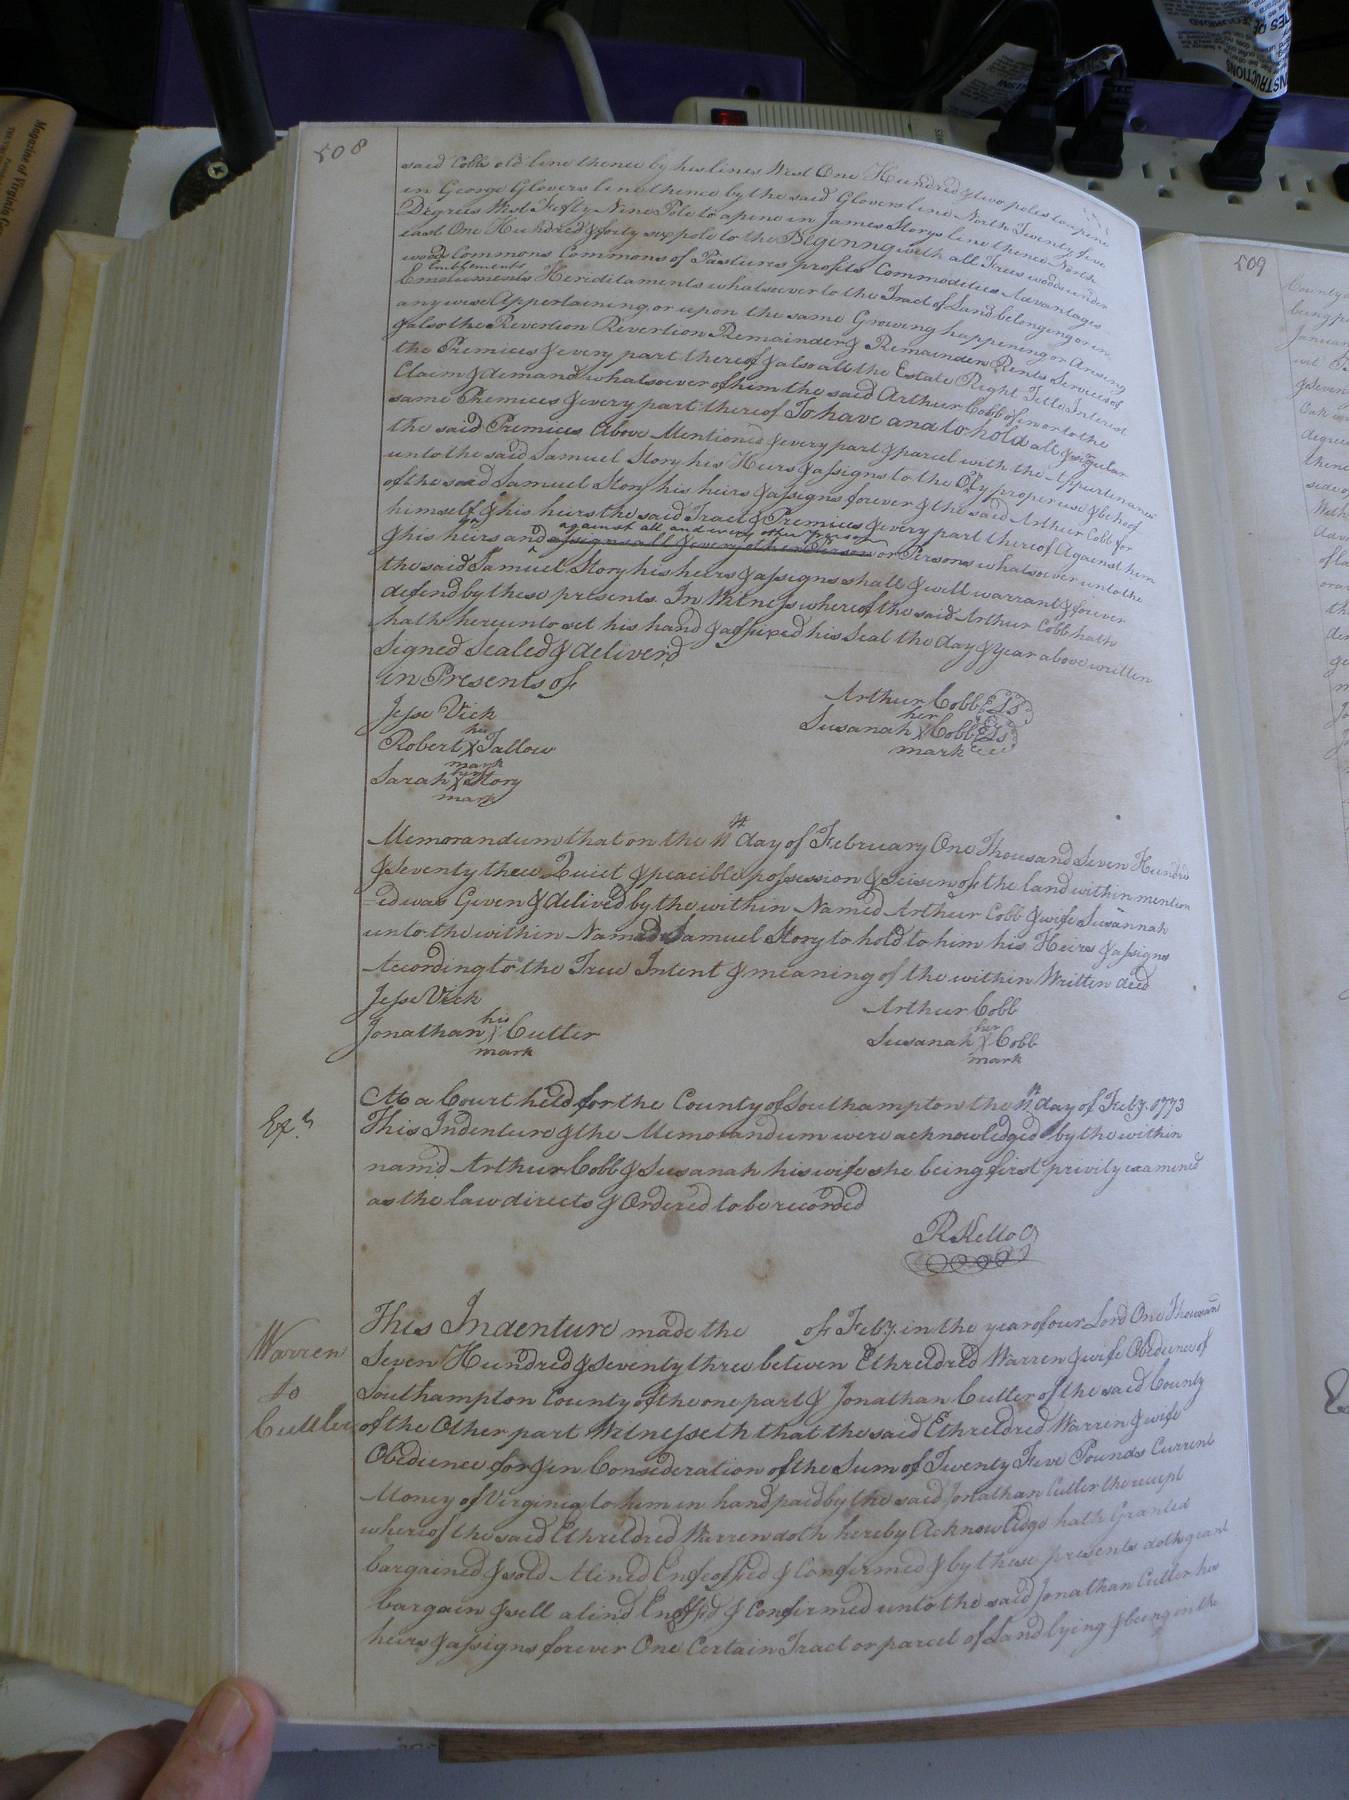 508
said Cobbs old line thence by his lines West One Hundred & two poles to a pine
in George Glovers line thence by the said Glovers line North Twenty five
Degrees West Fifty Nine Pole to a pine in James Storys line thence North
east One Hundred & forty six pole to the Beginng with all Trees woods under
woods Commons Commons of Pastures profits Commodities Advantages
Emblements
Emoluments Hereditaments whatsoever to the Tract of Land belonging or in
any wise Appertaining or upon the same Growing happening or Arising
& also the Revertion Revertion Remainder & Remainders Rents Services of
the Premices & every part thereof & also all the Estate Right Title Interest
Claim & demand whatsoever of him the said Arthur Cobb of in or to the
same Premices & every part thereof To have and to hold all & singular
the said Premices Above Mentioned & every part & parcel with the Appurtenances
unto the said Samuel Story his Heirs & assigns to the only proper use & behoof
of the said Samuel Story his heirs & assigns forever & the said Arthur Cobb for
himself & his heirs the said Tract & Premices & every part thereof Against him
against all and every other person
& his heirs and assigns all & every other Person or Persons whatsoever unto the
the said Samuel Story his heirs & assigns shall & will warrant & forever
defend by these presents. In Witness whereof the said Arthur Cobb hath
hath hereunto set his hand & affixed his Seal the day & Year above written
Signed Sealed & deliver'd
in Presents of
Jesse Vick
Arthur Cobb LS
his
her
Robert X Tallow
Susanah X Cobb LS
mark
mark
Sarah X Story
mark
Memorandum that on the 11th day of February One Thousand Seven Hundrd
& Seventy three Quiet & peacible possession & Seisen of the land within mention
=ed was Given & delived by the within Named Arthur Cobb & wife Susannah
unto the within Named Samuel Story to hold to him his Heirs & assigns
According to the True Intent & meaning of the within Written deed
Jesse Vick
Arthur Cobb
his
her
Jonathan X Cutler
Susanah X Cobb
mark
mark
At a Court held for the County of Southampton the 11th day of Feby. 1773
Exd
This Indenture & the Memorandum were acknowledged by the within
namd Arthur Cobb & Susanah his wife she being first privily examined
as the law directs & Ordered to be recorded
R Kello
This Indenture made the of Feby. in the year of our Lord One Thousand
Warren
to
Cutler
Seven Hundred & Seventy three between Ethreldred Warren & wife Obedience of
Southampton County of the one part & Jonathan Cutler of the said County
of the Other part Witnesseth that the said Ethreldred Warren & wife
Obedience for & in Consideration of the Sum of Twenty Five Pounds Current
Money of Virginia to him in hand paid by the said Jonathan Cutler the receipt
whereof the said Ethreldred Warren doth hereby Acknowledge hath Granted
bargained & sold Aliend Enfeoffed & Confirmed & by these presents doth grant
bargain & sell aliend Enoffed & Confirmed unto the said Jonathan Cutler his
heirs & assigns forever One Certain Tract or parcel of Land lying & being in the
509
County
being
Januar
Magazine of Virginia
INSTRUCTIONS